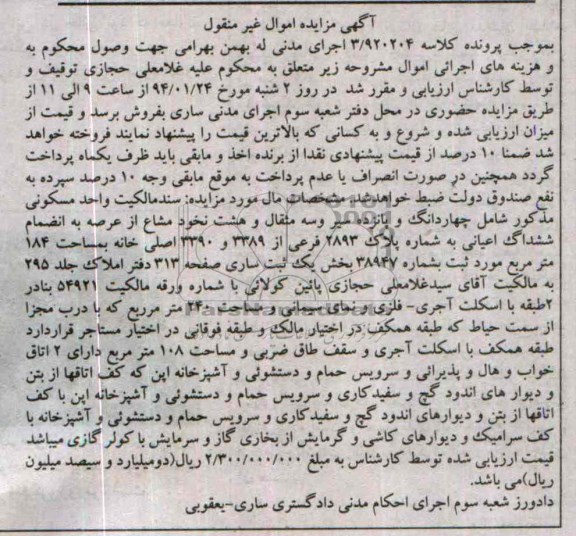 آگهی مزایده اموال غیر منقول
بموجب پرونده کلاسه ۳/۹۲۰۲۰۴ اجرای مدنی له بهمن بهرامی جهت وصول محکوم به
و هزینه های اجرائی اموال مشروحه زیر متعلق به محکوم علیه غلامعلی حجازی توقیف و
توسط کارشناس ارزیابی و مقرر شد در روز ۲ شنبه مورخ ۹۴/۰۱/۲۴ از ساعت ۹ الی ۱۱ از
طریق مزایده حضوری در محل دفتر شعبه سوم اجرای مدنی ساری بفروش برسد و قیمت از
میزان ارزیابی شده و شروع و به کسانی که بالاترین قیمت را پیشنهاد نمایند فروخته خواهد
شد ضمنا ۱۰ درصد از قیمت پیشنهادی نقدا از برنده اخذ و مابقی باید ظرف یکماه پرداخت
گردد همچنین در صورت انصراف یا عدم پرداخت به موقع مابقی وجه ۱۰ درصد سپرده به
نفع صندوق دولت ضبط خواهدشد. مشخصات مال مورد مزایده: سندمالکیت واحد مسکونی
مذکور شامل چهاردانگ و پانزده سیر وسه مثقال و هشت نخود مشاع از عرصه به انضمام
ششداگ اعیانی به شماره پلاک ۲۸۹۳ فرعی از ۳۳۸۹ و ۳۳۹۰ اصلی خانه بمساحت ۱۸۴
متر مربع مورد ثبت بشماره ۳۸۹۴۷ بخش یک ثبت ساری صفحه ۳۱۳ دفتر املاک جلد ۲۹۵
به مالکیت آقای سیدغلامعلی حجازی پائین کولائی با شماره ورقه مالکیت ۵۴۹۲۱ بنادر
۲طبقه با اسکلت آجری- فلزی و نمای سیمانی و مساحت ۲۴۰ متر مربع که با درب مجزا
از سمت حیاط که طبقه همکف در اختیار مالک و طبقه فوقانی در اختیار مستاجر قراردارد
طبقه همکف با اسکلت آجری و سقف طاق ضربی و مساحت ۱۰۸ متر مربع دارای ۲ اتاق
خواب و هال و پذیرائی و سرویس حمام و دستشوئی و آشپزخانه اپن که کف اتاقها از بتن
و دیوار های اندود گچ و سفیدکاری و سرویس حمام و دستشوئی و آشپزخانه اپن با کف
اتاقها از بتن و دیوارهای اندود گچ و سفیدکاری و سرویس حمام و دستشوئی و آشپزخانه با
کف سرامیک و دیوارهای کاشی و گرمایش از بخاری گاز و سرمایش با کولر گازی میباشد
قیمت ارزیابی شده توسط کارشناس به مبلغ ۲/۳۰۰/۰۰۰/۰۰۰ ریال(دومیلیارد و سیصد میلیون
ریال)می باشد.
دادورز شعبه سوم اجرای احکام مدنی دادگستری ساری-یعقوبی